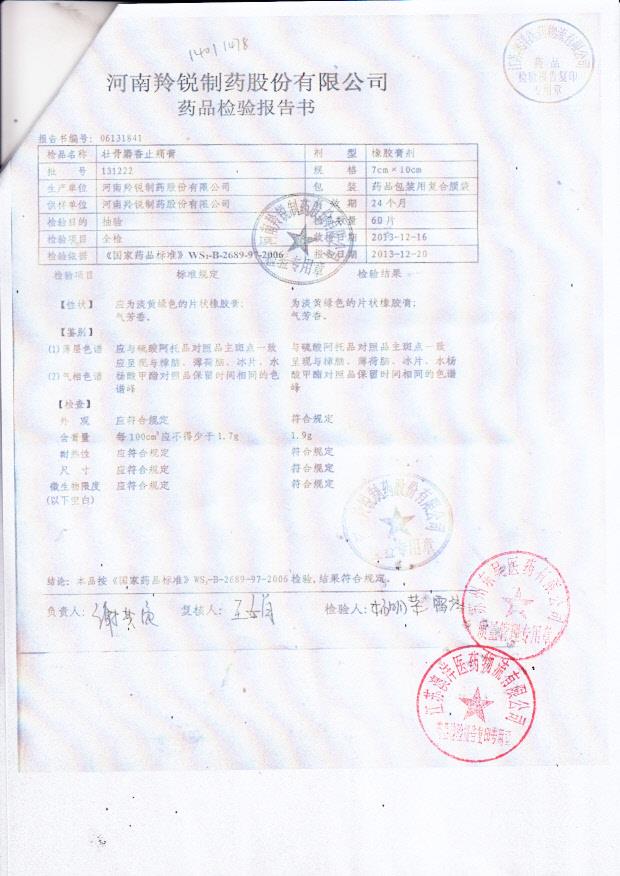 1401 1478
河南羚锐制药股份有限公司
药品检验报告书
药品
检验报告复印
专用章
报告书编号: 06131841
检品名称 壮骨麝香止痛膏 剂 型 橡胶膏剂
批 号 131222 规 格 7cm×10cm
生产单位 河南羚锐制药股份有限公司 包 装 药品包装用复合膜袋
供样单位 河南羚锐制药股份有限公司 效 期 24个月
检验目的 抽验 检验数量 60片
检验项目 全检 收检日期 2013-12-16
检验依据 《国家药品标准》WS₅-B-2689-97-2006 报告日期 2013-12-20
检验项目 标准规定 检验结果
【性状】 应为淡黄绿色的片状橡胶膏; 为淡黄绿色的片状橡胶膏;
气芳香。 气芳香。
【鉴别】
(1)薄层色谱 应与硫酸阿托品对照品主斑点一致 与硫酸阿托品对照品主斑点一致
应呈现与樟脑、薄荷脑、冰片、水 呈现与樟脑、薄荷脑、冰片、水杨
(2)气相色谱 杨酸甲酯对照品保留时间相同的色 酸甲酯对照品保留时间相同的色谱
谱峰 峰
【检查】
外 观 应符合规定 符合规定
含膏量 每100cm²应不得少于1.7g 1.9g
耐热性 应符合规定 符合规定
尺 寸 应符合规定 符合规定
微生物限度 应符合规定 符合规定
(以下空白)
结论: 本品按《国家药品标准》WS₅-B-2689-97-2006检验,结果符合规定。
负责人: 复核人: 检验人:
质量管理专用章
江苏澳洋医药物流有限公司